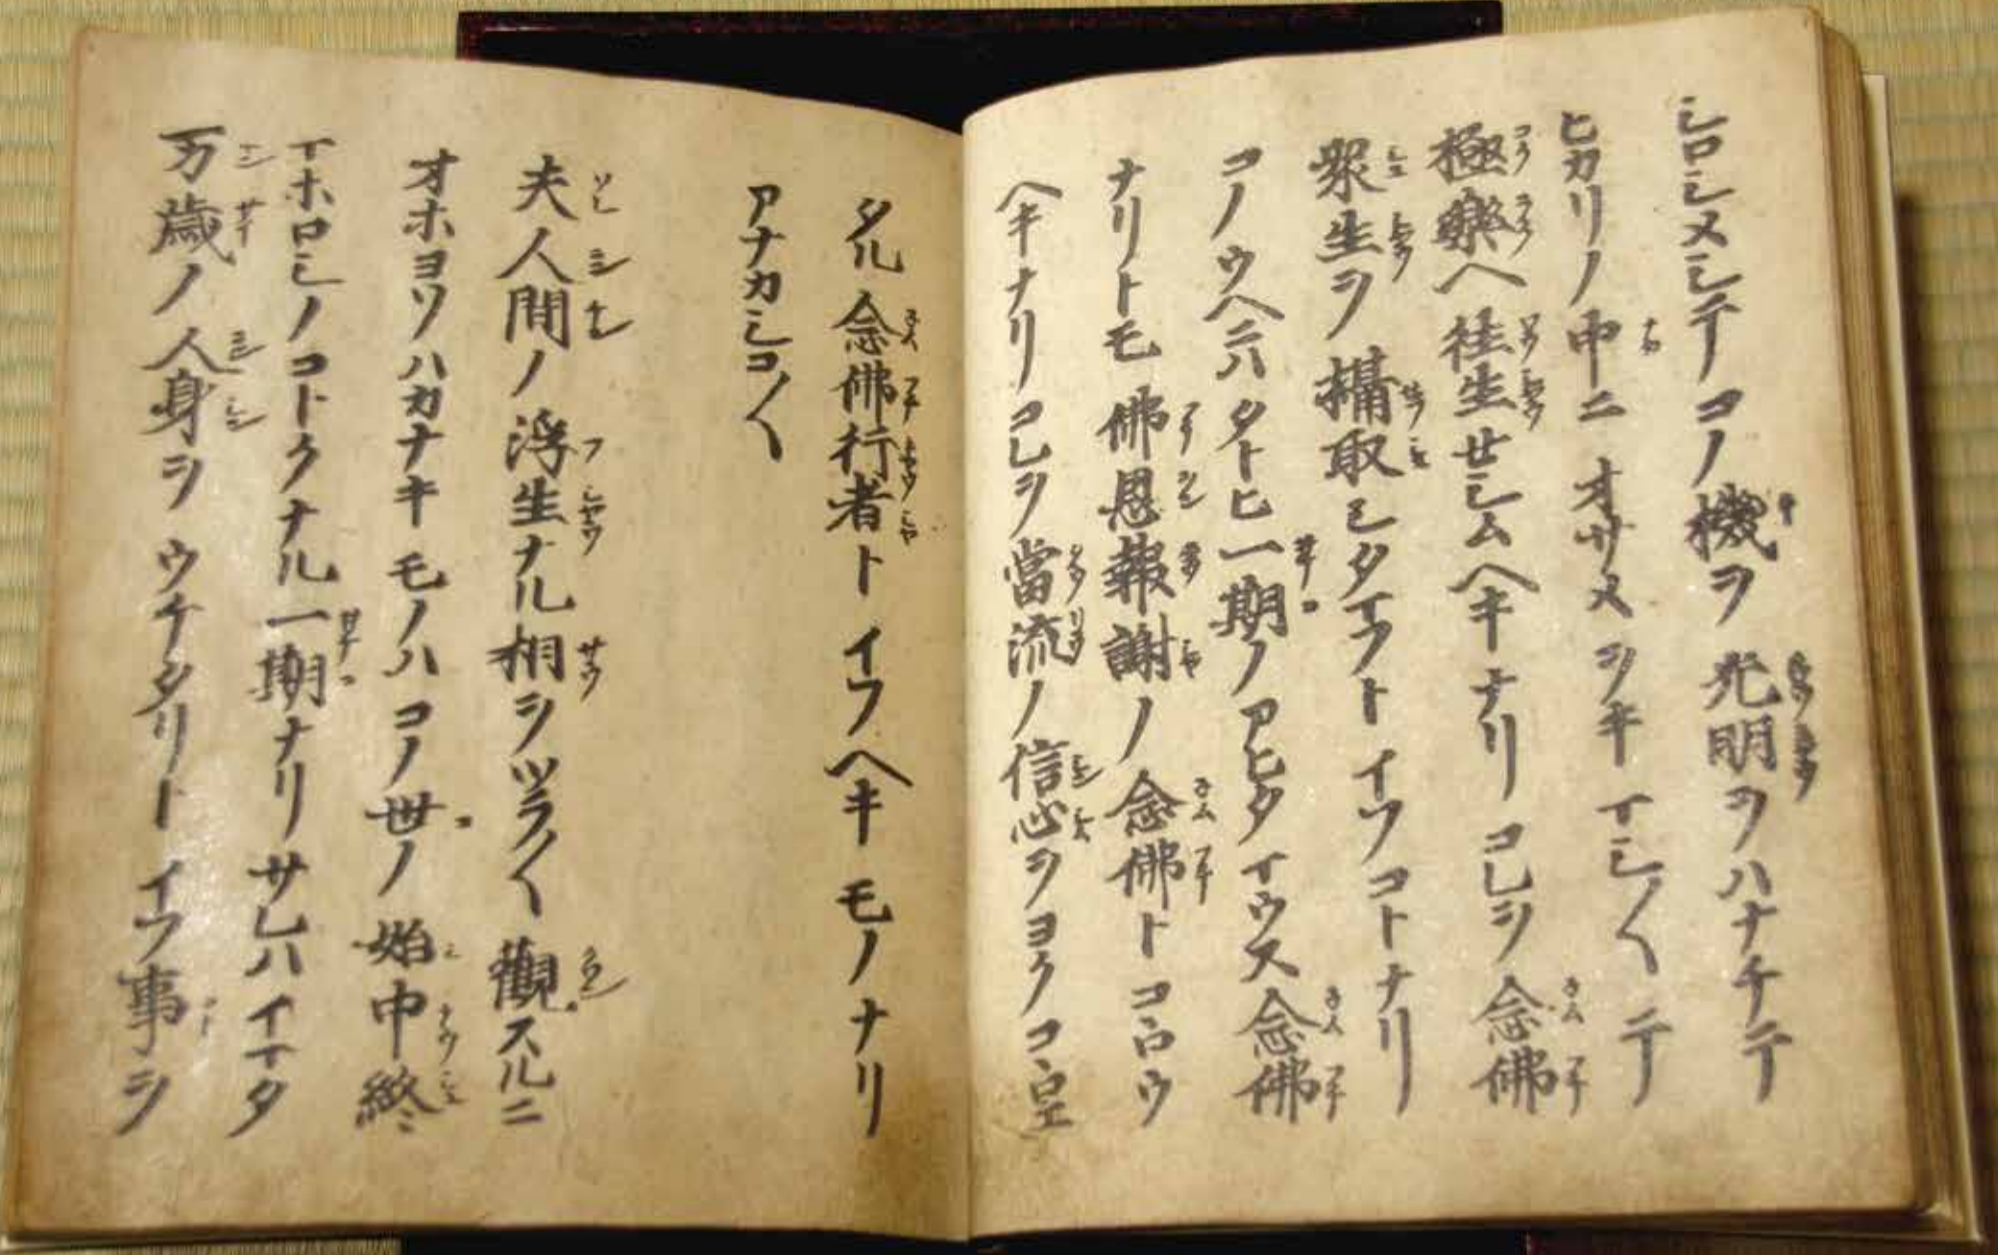 シロシメシテコノ機ヲ光明ヲハナチテ
ヒカリノ中ニオサメヲキマシ〱テ
極樂ヘ往生セシムヘキナリコレヲ念佛
衆生ヲ攝取シタマフトイフコトナリ
コノウヘニハタトヒ一期ノアヒタマウス念佛
ナリトモ佛恩報謝ノ念佛トコヽロウ
ヘキナリコレヲ當流ノ信心ヲヨクコヽロエ
タル念佛行者トイフヘキモノナリ
アナカシコ〱
夫人間ノ浮生ナル相ヲツラ〱觀スルニ
オホヨソハカナキモノハコノ世ノ始中終
マホロシノコトクナル一期ナリサレハイマタ
万歳ノ人身ヲウケタリトイフ事ヲ